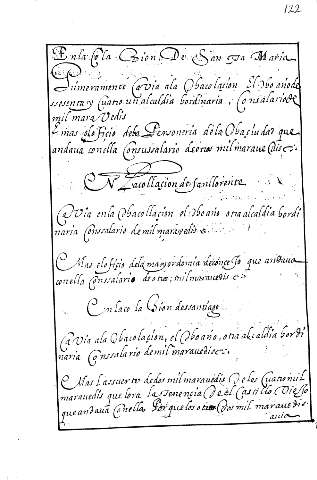 122
En la Colaçion De San ta Maria
Primeramente Cavia ala Dhacolaçion El dho año de
sesenta y cuatro un alcaldia hordinaria, Con salario de
mil mara vedis
mas elofficio dela Personeria dela Dha çiudad que
andava conella Consu salario de otros mil maravedis
En La collaçion de san llorente
Cavia en la Dha collaçion el dho año otra alcaldia hordi
naria Con ssalario de mil maravedis
Mas el officio dela mayordomia de conçejo que andava
conella Con ssalario de otros mil maravedis
En la co la çion de ssantiago
Cavia ala Dha Colaçion, el Dho año, otra alcaldia hordi
naria Con ssalario de mil maravedis
Mas la ssuerte de dos mil maravedis De los cuatro mil
maravedis que lora la tenencia De el Castillo Viejo
que andava Conella, Por que los otros Dos mil maravedis
avia